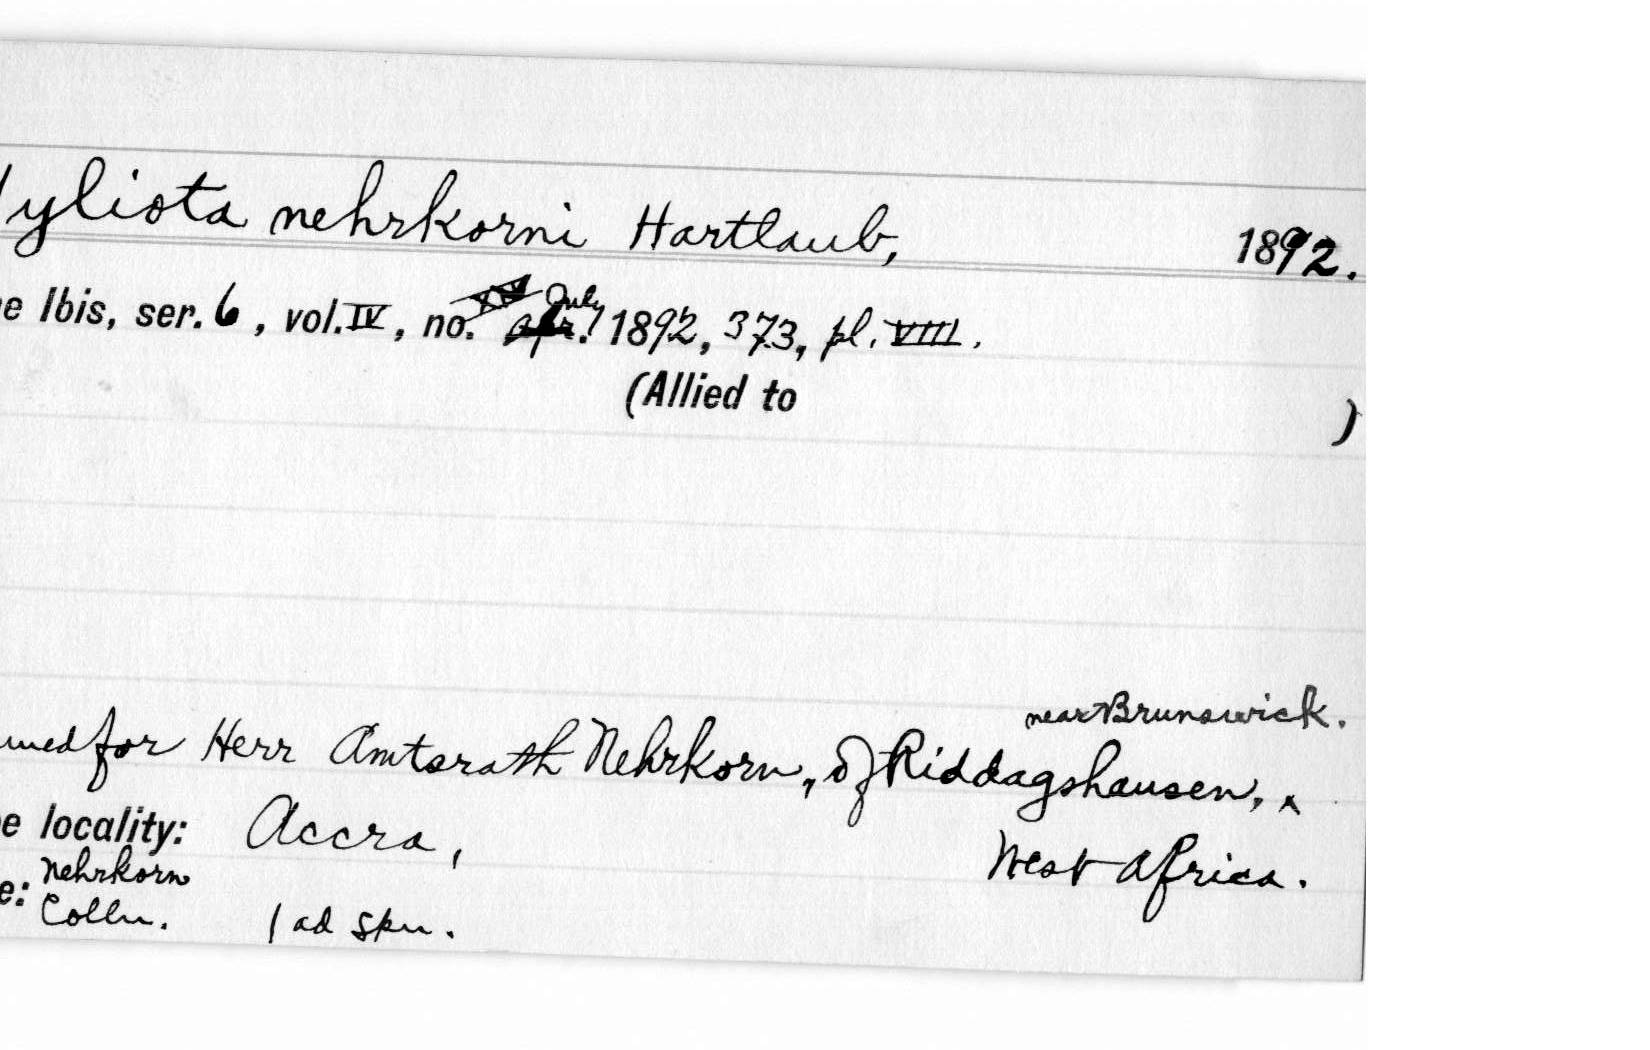 Hyliota nehrkorni Hartlaub, 1892.
e Ibis, ser. 6, vol. IV, no. July 1892, 373, pl. VIII.
(Allied to )
near Brunswick.
med for Herr Amtsrath Nehrkorn, of Riddagshausen, ^
e locality: Accra, West Africa.
e: Nehrkorn
Colln. 1 ad spn.